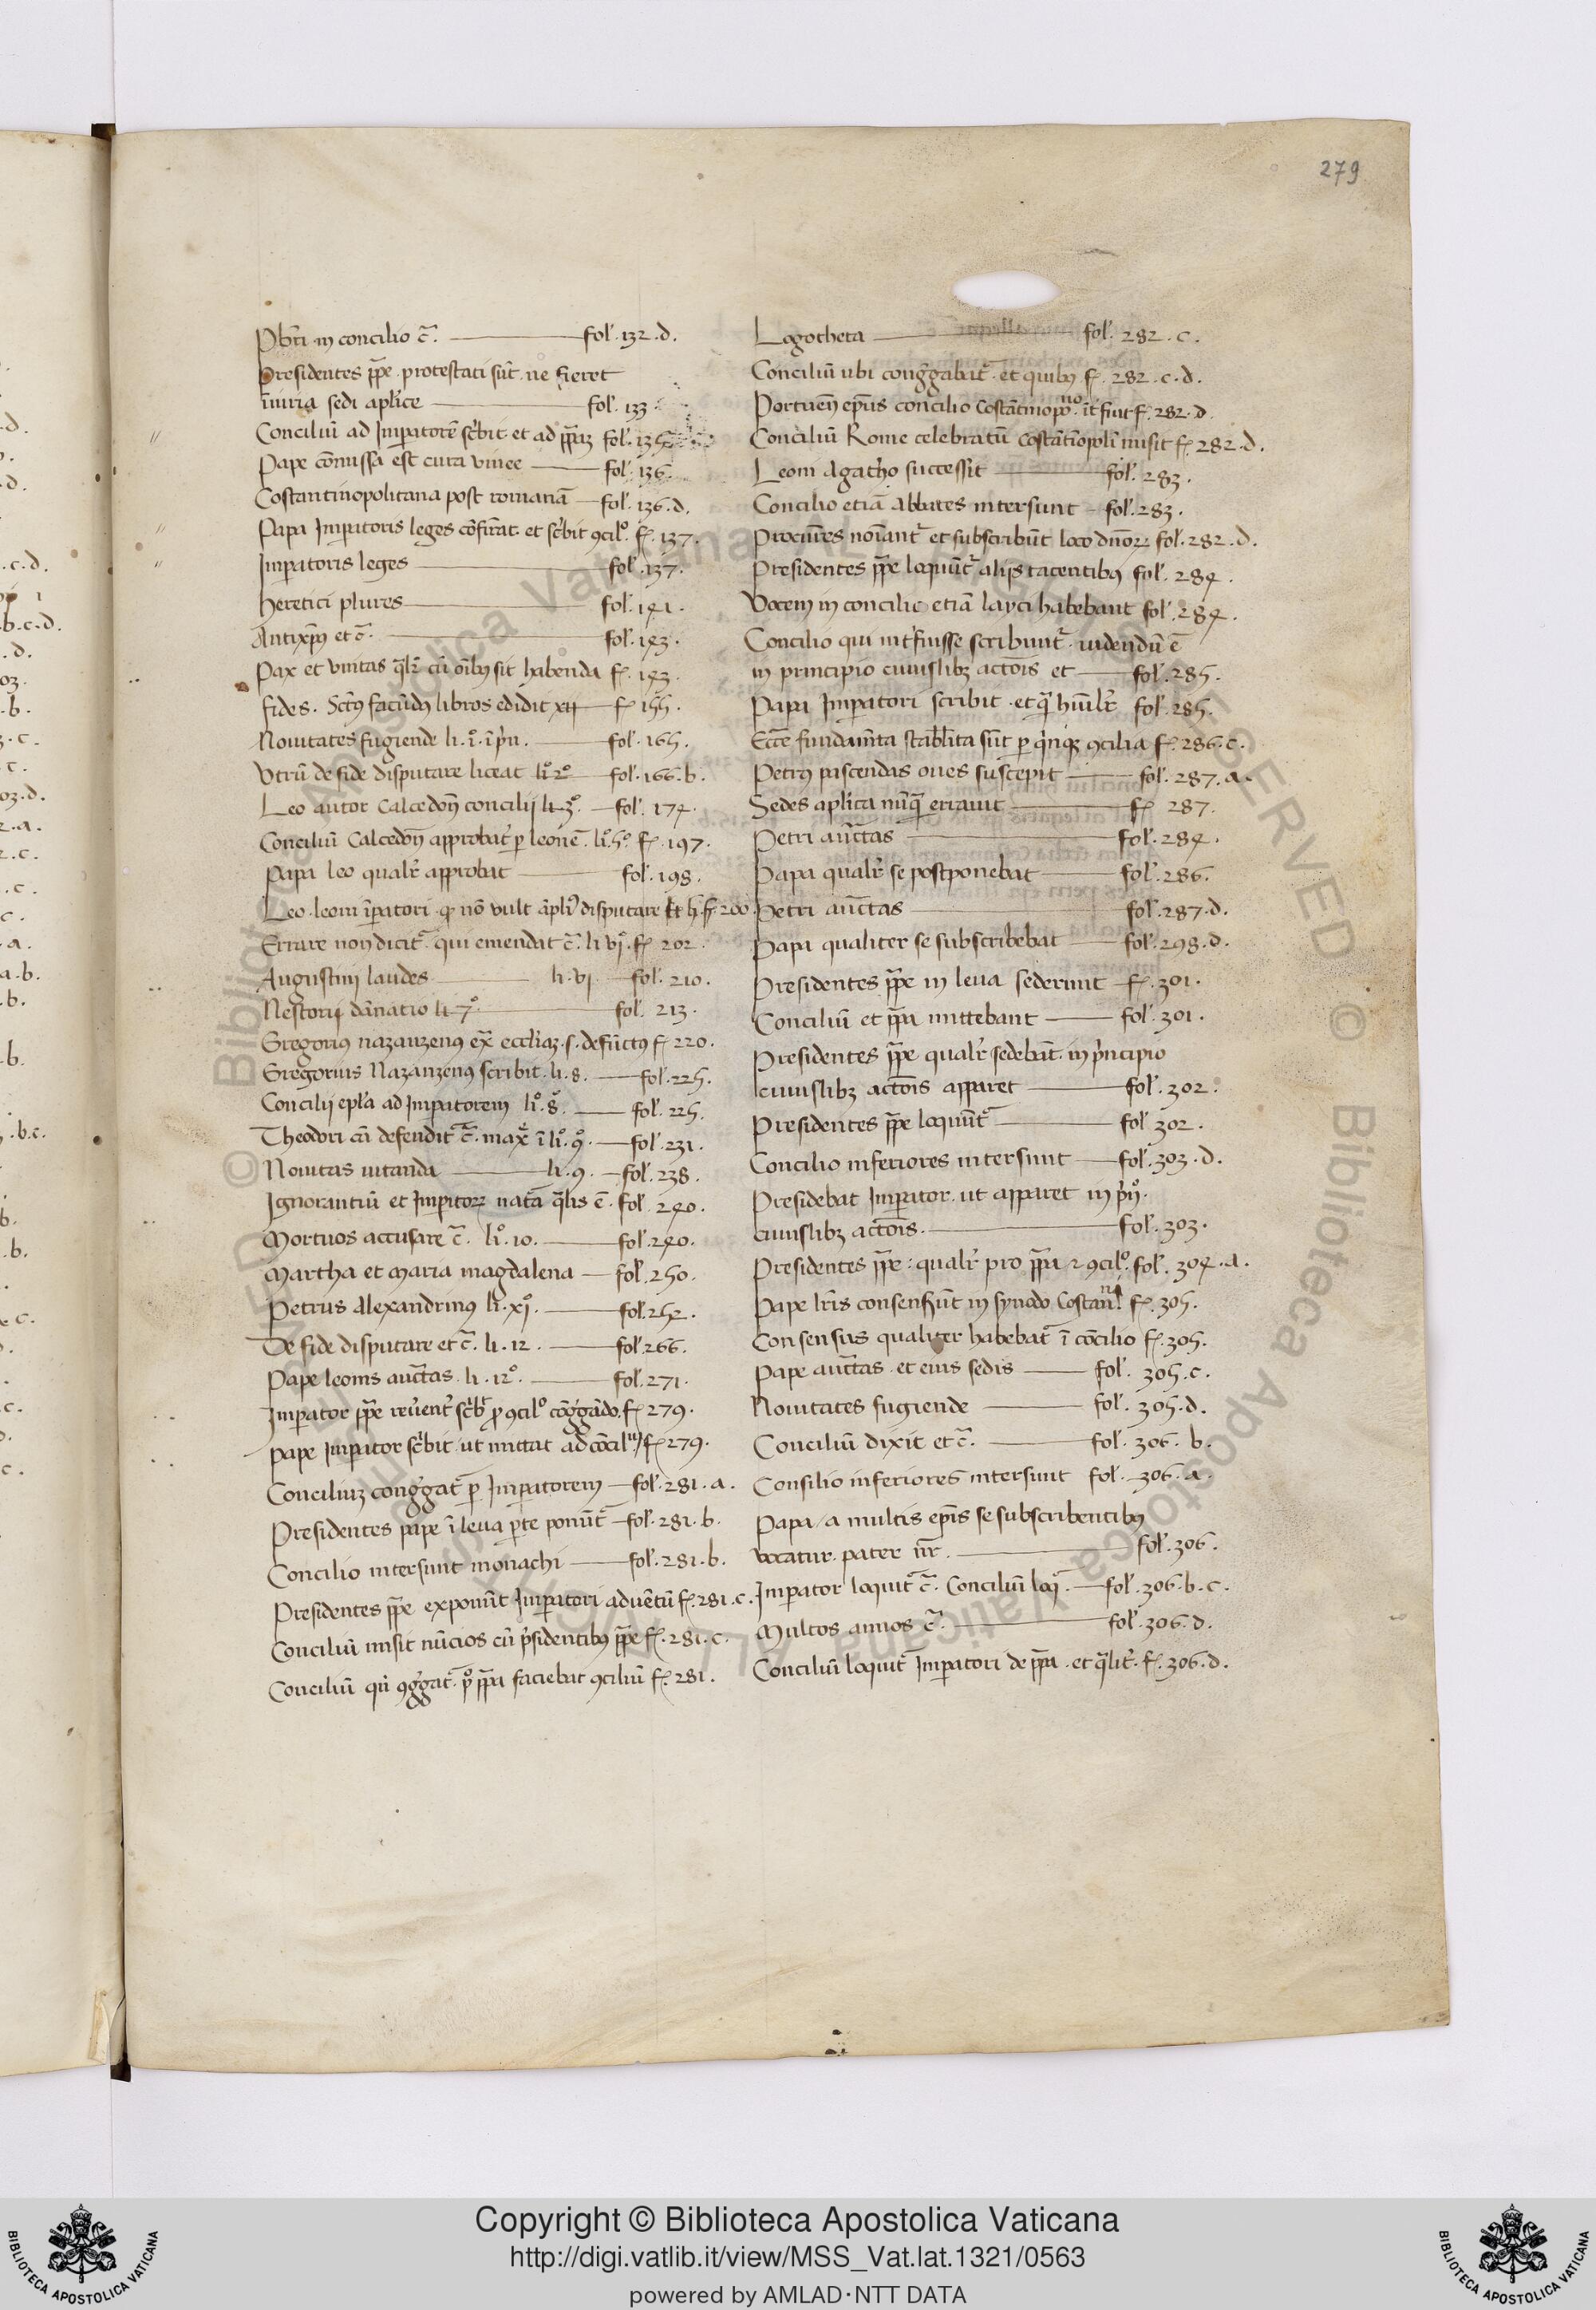 279
Pbr̄i in concilio c̄. fol. 132.d.
Presidentes pp̄e protestati sūt ne fieret
iniuria sedi aplice fol. 133.
Conciliū ad Imperatorē scribit et ad pp̄am fol. 135
Pape cōmissa est cura vinee fol. 136.
Costantinopolitana post romanā fol. 136.d.
Papa Imp̄atoris leges cōfirāt et scribit ↄcilº. f. 137.
Imp̄atoris leges fol. 137.
heretici plures fol. 141.
Antixp̄us et c̄. fol. 143.
Pax et vnitas qual'r cū oībus sit habenda f. 143.
fides. Sctūs facūdus libros edidit xii f. 155.
Nouitates fugiende li. iº. ī pri. fol. 165.
Vtrū de fide disputare liceat liº 2º fol. 166.b.
Leo autor Calcedoñ concilij li 3º. fol. 174.
Conciliū Calcedoñ approbat' p leonē. liº. 5º. f. 197.
Papa leo qual'r approbat fol. 198.
Leo leoni īpatori qd nō vult āpli' disputare li. 5. f. 200.
Errare non dicit' qui emendat c̄. li viº. f. 202.
Augustini laudes li. vi. fol. 210.
Nestorij dānatio li 7º. fol. 213.
Gregorius nazanzenus ex ecclīaz .s. defūctus f. 220.
Gregorius Nazanzenus scribit. li. 8. fol. 225.
Concilij epl'a ad Imperatorem liº. 8º. fol. 225.
Theodori cā defendit' c̄. max ī liº. 9º. fol. 231.
Nouitas uitanda li. 9. fol. 238.
Ignorantiū et Imp̄itor natā qlis ē. fol. 240.
Mortuos accusare c̄. liº. 10. fol. 240.
Martha et maria magdalena fol. 250.
Petrus Alexandrinus li. xiº. fol. 252.
De fide disputare et c̄. li. 12. fol. 266.
Pape leonis auctas li. 12º. fol. 271.
Imperator pp̄e reuent' scrib' p ↄcilº cōggādo. f. 279.
Pape Imp̄ator scribit ut mittat ad cōciliu / f. 279.
Conciliuz congregat' p Imperatorem fol. 281.a.
Presidentes pape ī leua pte ponūt' fol. 281.b.
Concilio intersunt monachi fol. 281.b.
Presidentes pp̄e exponūt Imp̄atori aduētū f. 281.c.
Conciliū misit nūcios cū p̄sidentibus pp̄e f. 281.c.
Conciliū qn̄ ↄggat' pº pp̄a faciebat ↄciliū f. 281.
Logotheta fol. 282.c.
Conciliū ubi conggabat' et quibus f. 282.c.d.
Portueñ ep̄us concilio Costātinopoⁿº. īt'fuit f. 282.d.
Conciliū Rome celebratū Costātinopolī misit f. 282.d.
Leoni Agatho successit fol. 283.
Concilio etiā Abbates intersunt fol. 283.
Procures noīant' et subscribūt loco dnōr fol. 282.d.
Presidentes pp̄e loquūt' alijs tacentibus fol. 284.
Vocem in concilio etiā layci habebant fol. 284.
Concilio qui int'fuisse scribunt' uidendū ē
in principio cuiuslibz actōis et fol. 285.
Papa Imperatori scribit et qª hūil'r fol. 285.
Eccē fundamta stabilita sūt p qīnqz ↄcilia f. 286.c.
Petrus pascendas oues suscepit fol. 287.a.
Sedes aplica nūqª errauit f. 287.
Petri auctas fol. 284.
Papa qual'r se postponebat fol. 286.
Petri auctas fol. 287.d.
Papa qualiter se subscribebat fol. 298.d.
Presidentes pp̄e in leua sederunt f. 301.
Conciliū et pp̄a mittebant fol. 301.
Presidentes pp̄e qual'r sedebāt in p̄ncipio
cuiuslibz actōis apparet fol. 302.
Presidentes pp̄e loquūt' fol. 302.
Concilio inferiores intersunt fol. 303.d.
Presidebat Imperator ut apparet in p̄nº.
cuiuslibz actōis. fol. 303.
Presidentes pp̄e : qual'r pro pp̄a ⁊ ↄcilº. fol. 304.a.
Pape lr̄is consenserūt in synodo Costanna. f. 305.
Consensus qualiter habebat' ī cōcilio f. 305.
Pape auctas et eius sedis fol. 305.c.
Nouitates fugiende fol. 305.d.
Conciliū dixit et c̄. fol. 306.b.
Consilio inferiores intersunt fol. 306.a.
Papa / a multis ep̄is se subscribentibus
vocatur pater nr̄. fol. 306.
Imperator loquit' c̄. Conciliū loq'. fol. 306.b.c.
Multos annos c̄. fol. 306.d.
Conciliū loquit' Imperatori de pp̄a et qlit'. f. 306.d.
Copyright © Biblioteca Apostolica Vaticana
http://digi.vatlib.it/view/MSS_Vat.lat.1321/0563
powered by AMLAD·NTT DATA